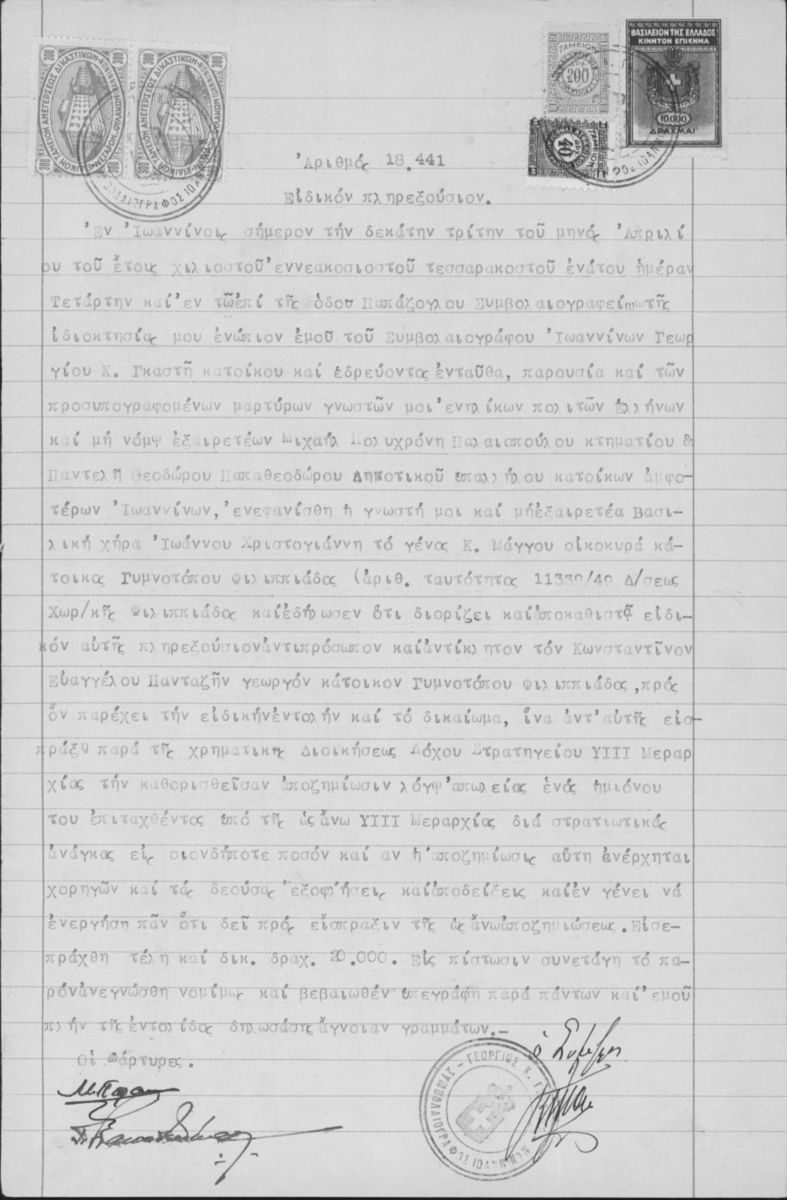 ΒΑΣΙΛΕΙΟΝ ΤΗΣ ΕΛΛΑΔΟΣ
ΚΙΝΗΤΟΝ ΕΠΙΣΗΜΑ
10.000
ΔΡΑΧΜΑΙ
ΤΑΜΕΙΟΝ
200
40
300 300 300 300
Ἀριθμός 18.441
Εἰδικόν πληρεξούσιον.
Ἐν Ἰωαννίνοις σήμερον τήν δεκάτην τρίτην τοῦ μηνός Ἀπριλί
ου τοῦ ἔτους χιλιοστοῦ ἐννεακοσιοστοῦ τεσσαρακοστοῦ ἐνάτου ἡμέραν
Τετάρτην καί ἐν τῶ ἐπί τῆς ὁδου Παπάζογλου Συμβολαιογραφείῳ τῆς
ἰδιοκτησίας μου ἐνώπιον ἐμοῦ τοῦ Συμβολαιογράφου Ἰωαννίνων Γεωρ
γίου Κ. Γκαστῆ κατοίκου καί ἑδρεύοντος ἐνταῦθα, παρουσία καί τῶν
προσυπογραφομένων μαρτύρων γνωστῶν μοι ἐνηλίκων πολιτῶν Ἑλλήνων
καί μή νόμῳ ἐξαιρετέων Μιχαήλ Πολυχρόνη Παλαιοπούλου κτηματίου &
Παντελῆ Θεοδώρου Παπαθεοδώρου Δημοτικοῦ ὑπαλλήλου κατοίκων ἀμφο-
τέρων Ἰωαννίνων, ἐνεφανίσθη ἡ γνωστή μοι καί μή ἐξαιρετέα Βασι-
λική χήρα Ἰωάννου Χριστογιάννη τό γένος Κ. Μάγγου οἰκοκυρά κά-
τοικος Γυμνοτόπου Φιλιππιάδος (ἀριθ. ταυτότητος 11339/49 Δ/σεως
Χωρ/κῆς Φιλιππιάδος καί ἐδήλωσεν ὅτι διορίζει καί ἀποκαθιστᾶ εἰδι-
κόν αὐτῆς πληρεξούσιον ἀντιπρόσωπον καί ἀντίκλητον τόν Κωνσταντῖνον
Εὐαγγέλου Πανταζῆν γεωργόν κάτοικον Γυμνοτόπου Φιλιππιάδος, πρός
ὅν παρέχει τήν εἰδικήν ἐντολήν καί τό δικαίωμα, ἵνα ἀντ' αὐτῆς εἰσ-
πράξῃ παρά τῆς χρηματικῆς Διοικήσεως Λόχου Στρατηγείου ΥΙΙΙ Μεραρ
χίας τήν καθορισθεῖσαν ἀποζημίωσιν λόγῳ ἀπωλείας ἑνός ἡμιόνου
του ἐπιταχθέντος ὑπό τῆς ὡς ἄνω ΥΙΙΙ Μεραρχίας διά στρατιωτικάς
ἀνάγκας εἰς οιονδήποτε ποσόν καί αν ἡ ἀποζημίωσις αὕτη ἀνέρχηται
χορηγῶν καί τάς δεούσας ἐξοφλήσεις καί ἀποδείξεις καί ἐν γένει νά
ἐνεργήση πᾶν ὅτι δεῖ πρός εἴσπραξιν τῆς ὡς ἄνω ἀποζημιώσεως. Εἰσε-
πράχθη τέλη καί δικ. δραχ. 20.000. Εἰς πίστωσιν συνετάγη τό πα-
ρόν ἀνεγνώσθη νομίμως καί βεβαιωθέν ὑπεγράφη παρά πάντων καί ἐμοῦ
πλήν τῆς ἐντολίδος δηλωσάσης ἄγνοιαν γραμμάτων.-
Οἱ Μάρτυρες.